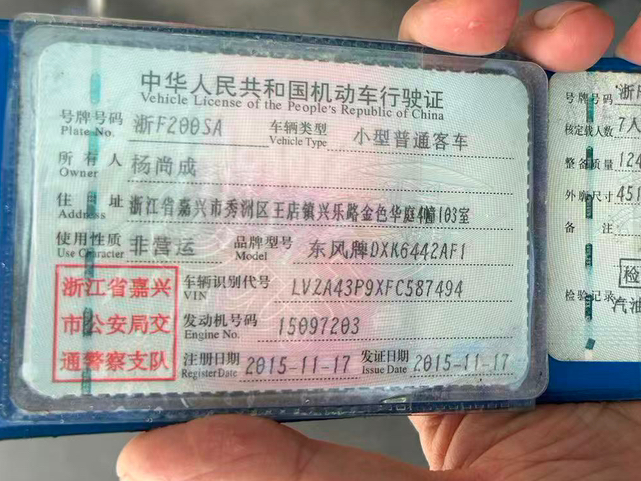 中华人民共和国机动车行驶证
Vehicle License of the People's Republic of China
号牌号码 Plate No. 浙F200SA 车辆类型 Vehicle Type 小型普通客车
所有人 Owner 杨尚成
住址 Address 浙江省嘉兴市秀洲区王店镇兴乐路金色华庭4幢103室
使用性质 Use Character 非营运 品牌型号 Model 东风牌DXK6442AF1
车辆识别代号 VIN LVZA43P9XFC587494
发动机号码 Engine No. 15097203
注册日期 Register Date 2015-11-17 发证日期 Issue Date 2015-11-17
浙江省嘉兴
市公安局交
通警察支队
号牌号码 浙F
核定载人数 7人
整备质量 124
外廓尺寸 451
备注
检
检验记录
汽油